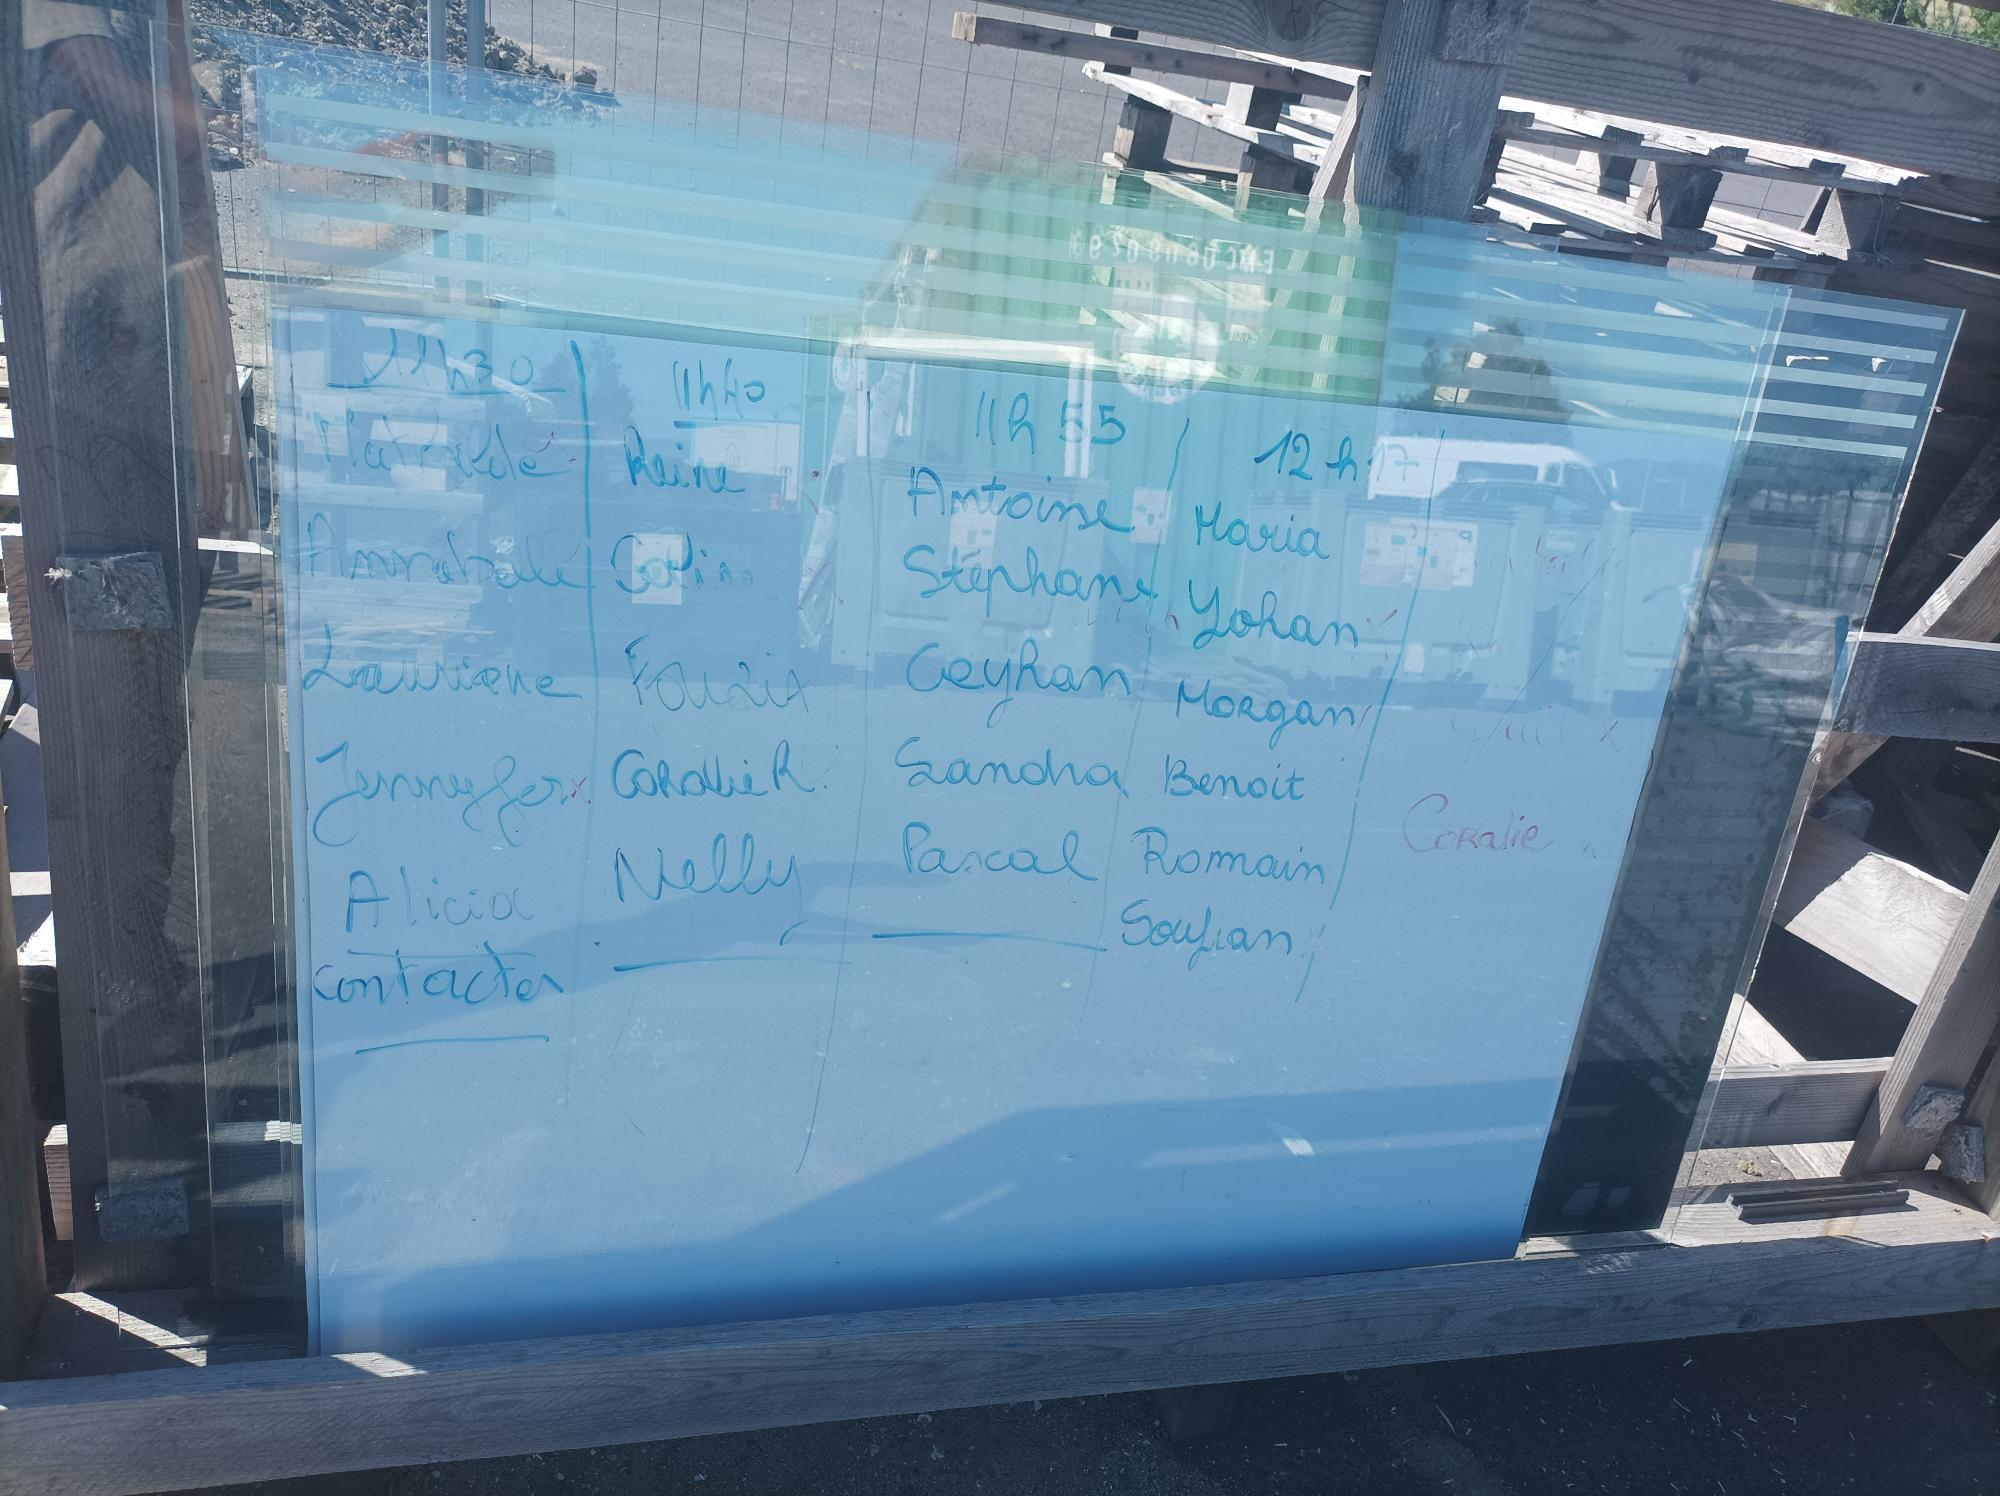 11h30
Mathilde
Annabelle
Lauriane
Jennyfer x
Alicia
contacter
11h40
Reine
Colin
Fouzix
CORAlie R.
Nelly
11h55
Antoine
Stéphane
Ceyhan
Sandra
Pascal
12h17
Maria
Yohan
Morgan
Benoit
Romain
Soufian
CORAlie